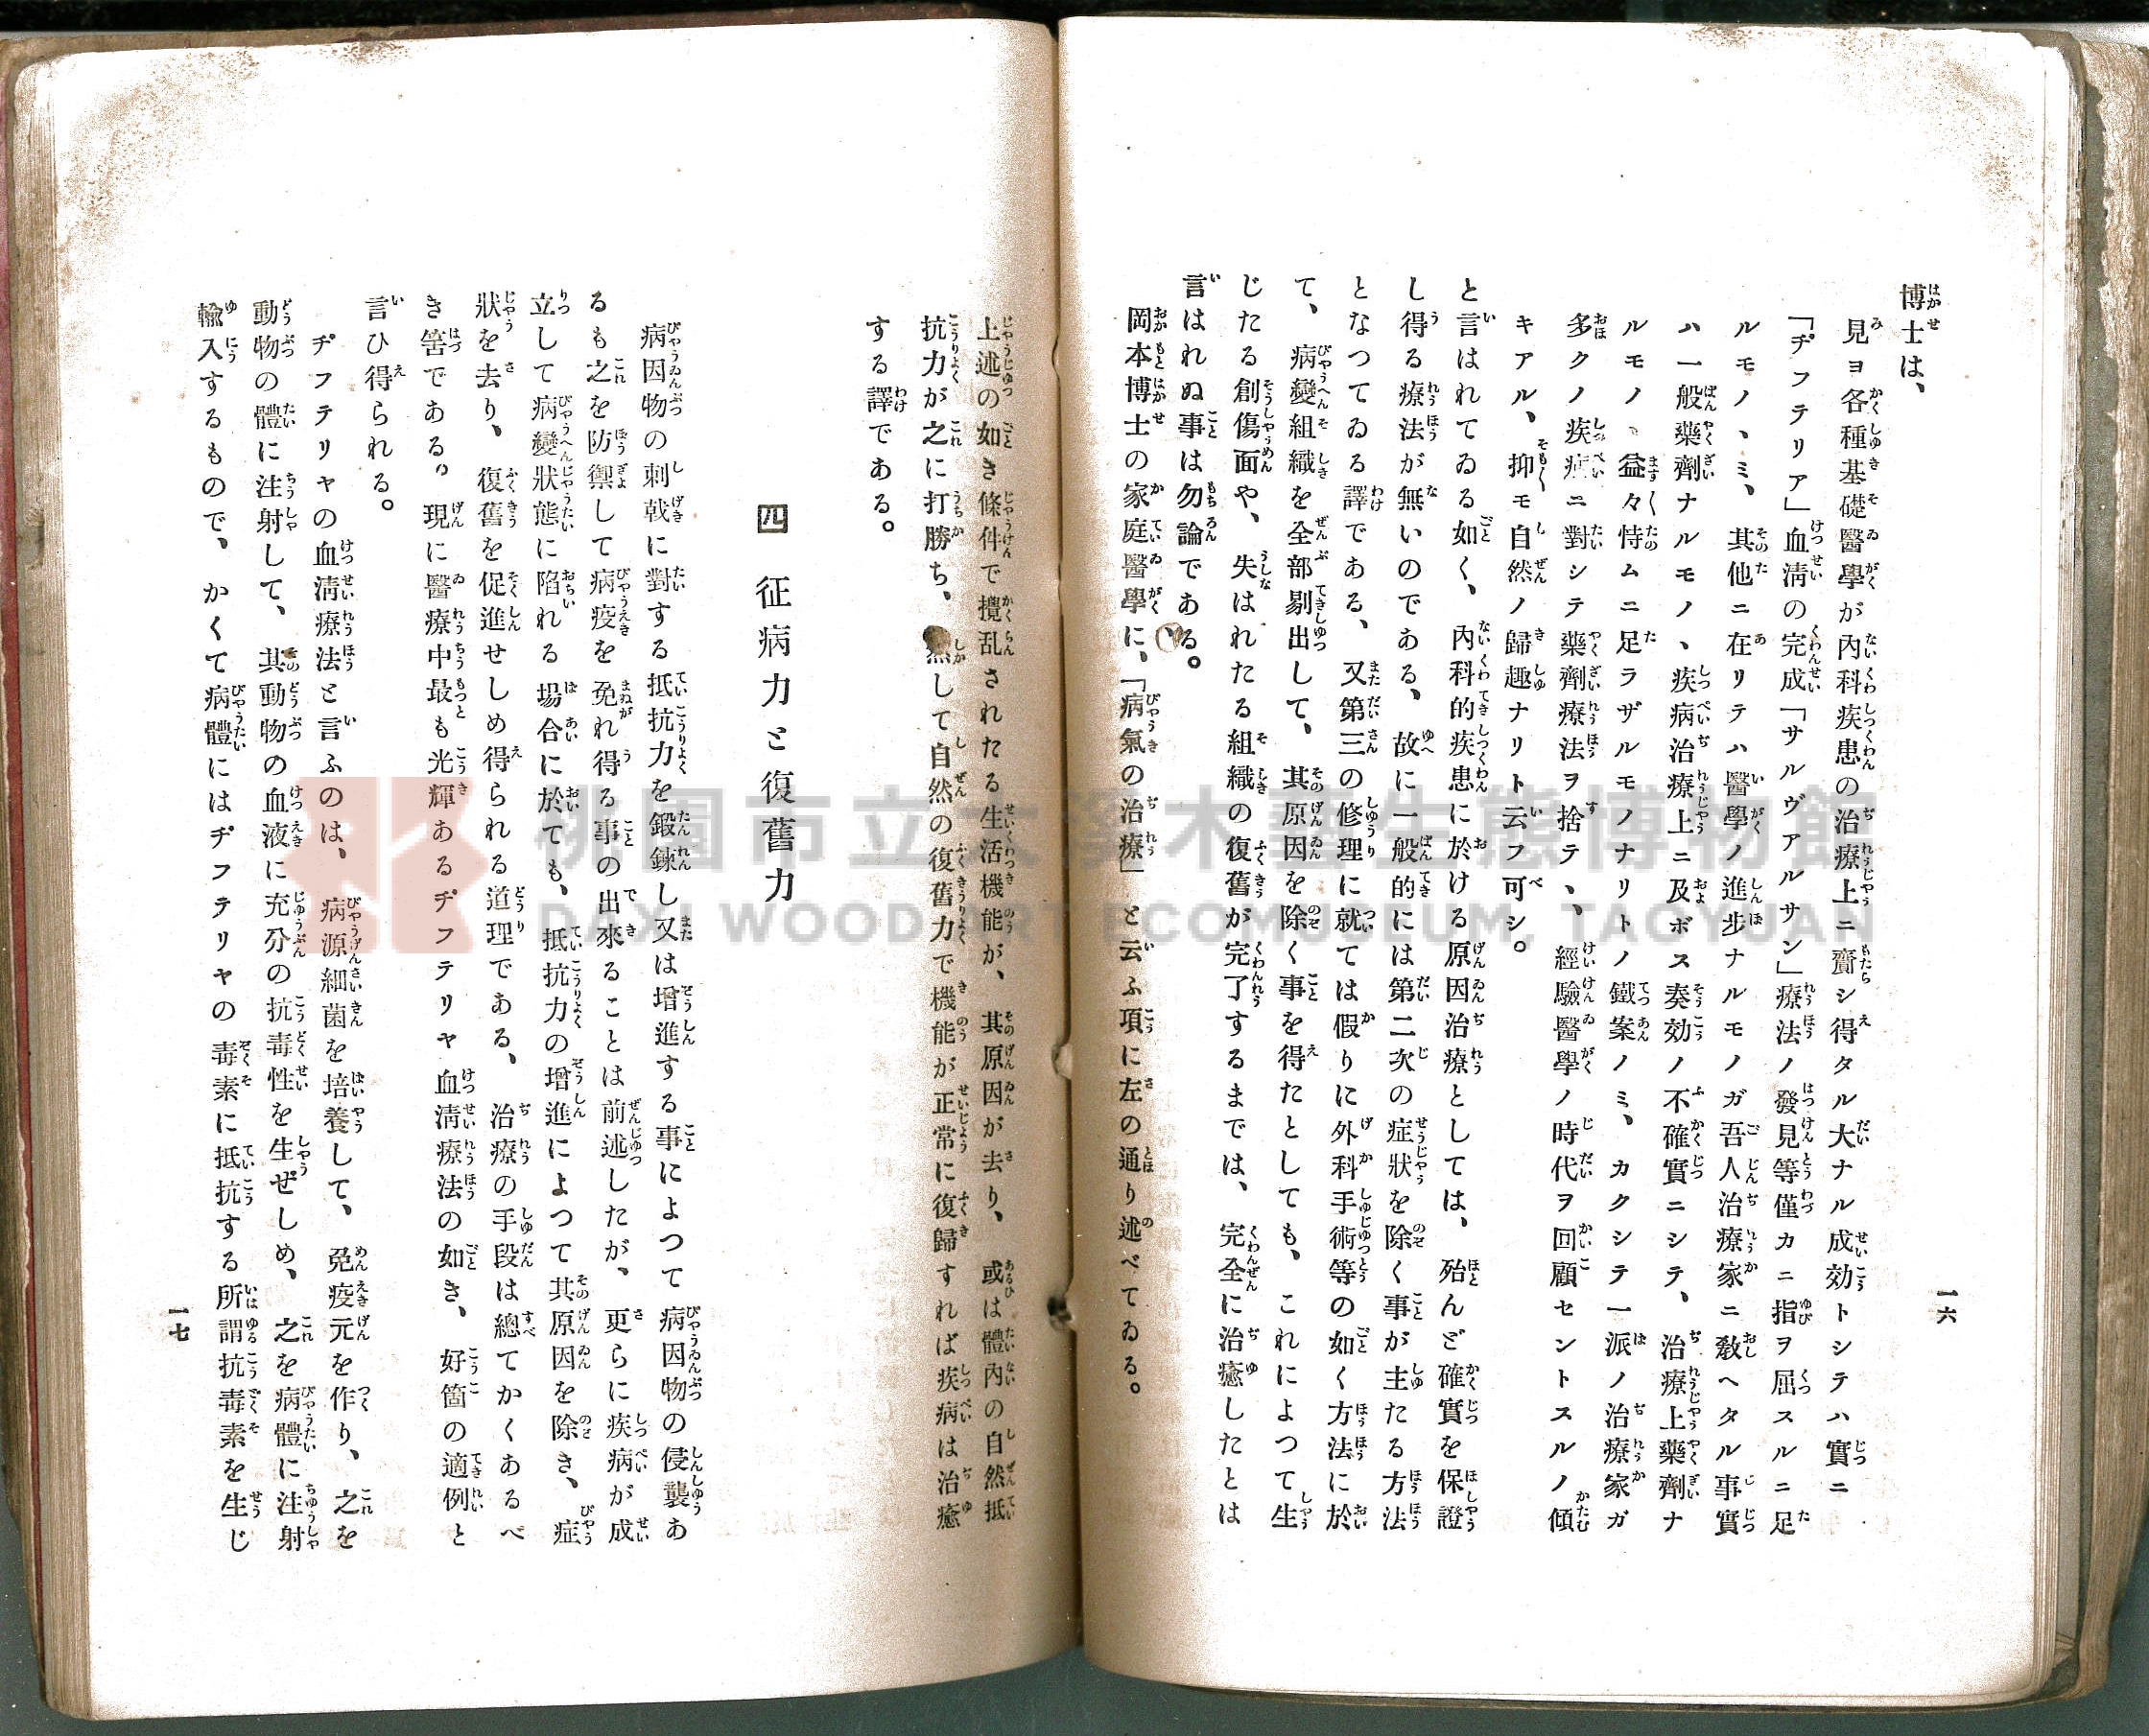 一六
博士は、
見ヨ各種基礎醫學が內科疾患の治療上ニ齎シ得タル大ナル成効トシテハ實ニ
「ヂフテリア」血淸の完成「サルヴアルサン」療法ノ發見等僅カニ指ヲ屈スルニ足
ルモノヽミ、其他ニ在リテハ醫學ノ進步ナルモノガ吾人治療家ニ敎ヘタル事實
ハ一般藥劑ナルモノヽ疾病治療上ニ及ボス奏効ノ不確實ニシテ、治療上藥劑ナ
ルモノヽ益々恃ムニ足ラザルモノナリトノ鐵案ノミ、カクシテ一派ノ治療家ガ
多クノ疾病ニ對シテ藥劑療法ヲ捨テ、、經驗醫學ノ時代ヲ回顧セントスルノ傾
キアル、抑モ自然ノ歸趣ナリト云フ可シ。
と言はれてゐる如く、內科的疾患に於ける原因治療としては、殆んど確實を保證
し得る療法が無いのである、故に一般的には第二次の症狀を除く事が主たる方法
となつてゐる譯である、又第三の修理に就ては假りに外科手術等の如く方法に於
て、病變組織を全部剔出して、其原因を除く事を得たとしても、これによつて生
じたる創傷面や、失はれたる組織の復舊が完了するまでは、完全に治癒したとは
言はれぬ事は勿論である。
岡本博士の家庭醫學に、「病氣の治療」と云ふ項に左の通り述べてゐる。
上述の如き條件で攪乱されたる生活機能が、其原因が去り、或は體內の自然抵
抗力が之に打勝ち、然して自然の復舊力で機能が正常に復歸すれば疾病は治癒
する譯である。
四 征病力と復舊力
病因物の刺戟に對する抵抗力を鍛錬し又は增進する事によつて病因物の侵襲あ
るも之を防禦して病疫を免れ得る事の出來ることは前述したが、更らに疾病が成
立して病變狀態に陷れる場合に於ても、抵抗力の增進によつて其原因を除き、症
狀を去り、復舊を促進せしめ得られる道理である、治療の手段は總てかくあるべ
き筈である。現に醫療中最も光輝あるヂフテリヤ血淸療法の如き、好箇の適例と
言ひ得られる。
ヂフテリヤの血淸療法と言ふのは、病源細菌を培養して、免疫元を作り、之を
動物の體に注射して、其動物の血液に充分の抗毒性を生ぜしめ、之を病體に注射
輸入するもので、かくて病體にはヂフテリヤの毒素に抵抗する所謂抗毒素を生じ
一七
桃園市立大溪木藝生態博物館
DAXI WOOD ART ECOMUSEUM, TAOYUAN